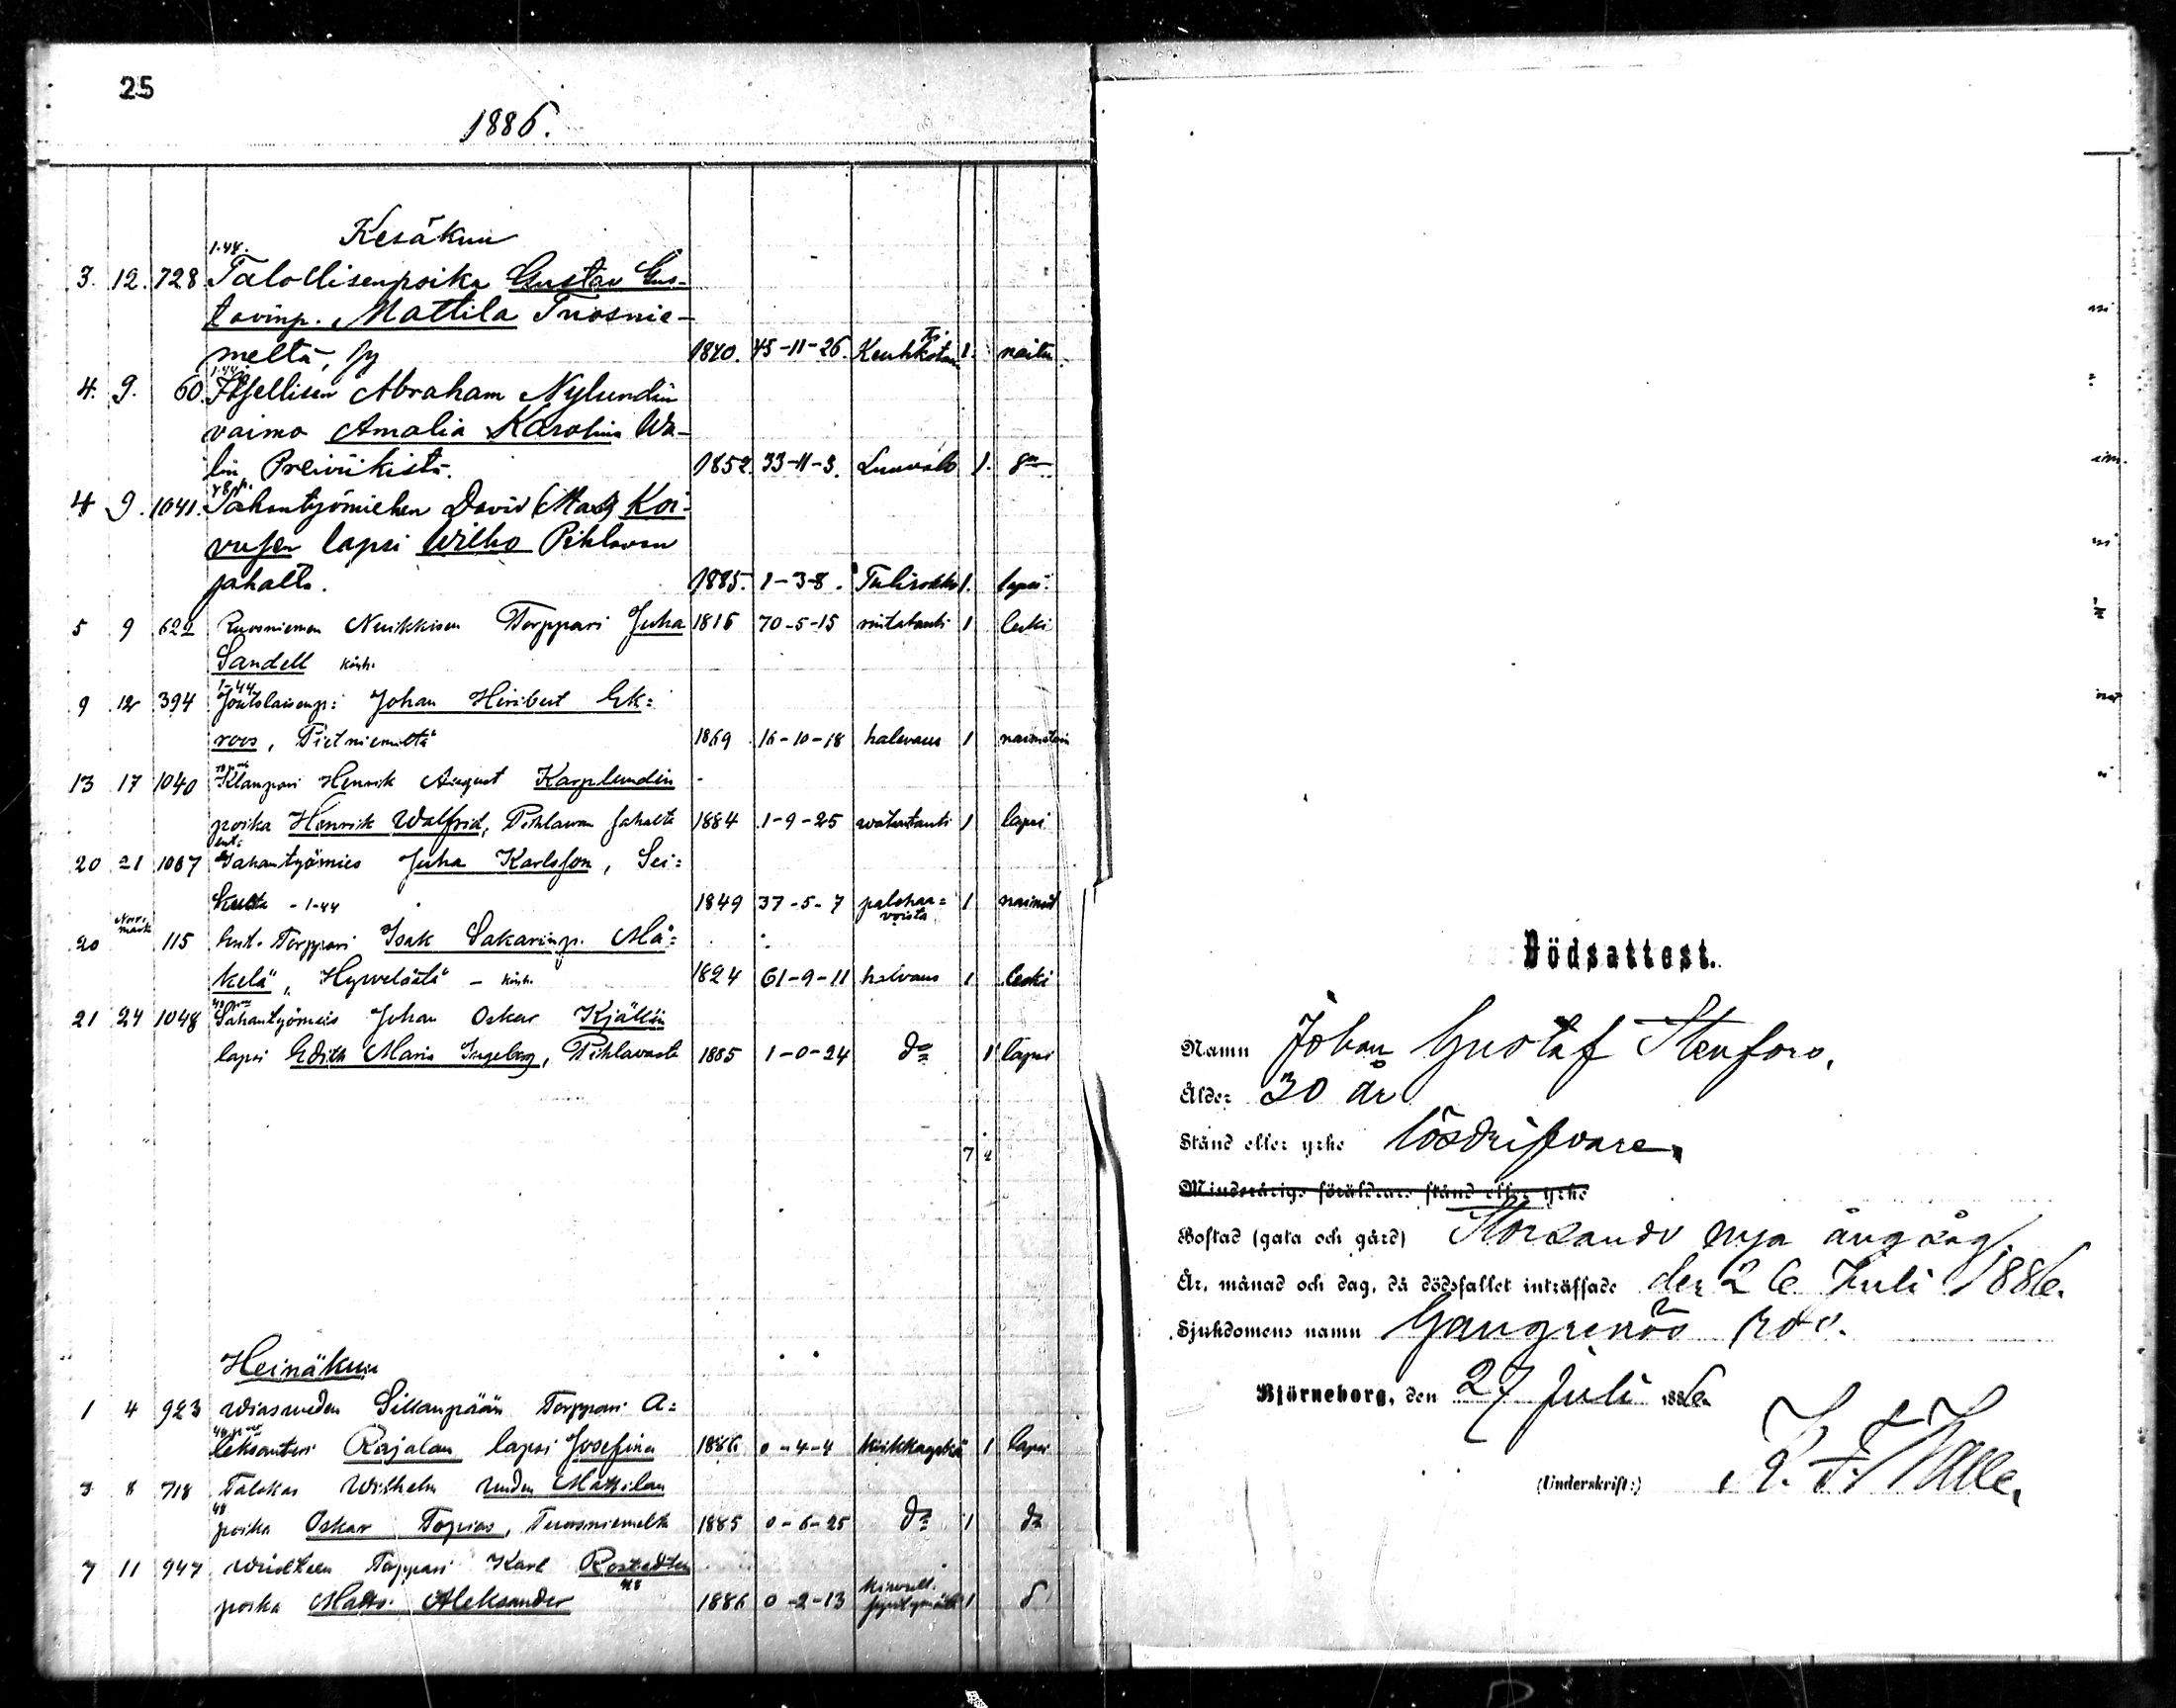 25
1886.
Kesäkuu
1.44.
3. 12. 728 Talollisenpoika Gustav Gus-
tavinp. Mattila Tuosnie-
meltä, 1840. 45-11-26. Keuhkotauti 1. naitu
4. 9. 60. Itsellisen Abraham Nylundin
vaimo Amalia Karolina Wa-
lin Preiviikistä. 1852. 33-11-3. Luuvalo 1.
4 9. 1041. Sahantyömiehen David (Mats) Koi-
vusen lapsi Wilho Pihlavan
sahalta. 1885. 1-3-8. Tulirokko 1. lapsi.
5 9 622 Ruosniemen Torppari Juha 1816 70-5-15 rintatauti 1 leski
Sandell
1-44
9 12 394 Joutolaisenp: Johan Heribert Ek=
roos, Pietniemeltä 1869 16-10-18 halvaus 1 naimatoin
13 17 1040 Klampari Henrik August Karplundin
poika Henrik Walfrid, Pihlavan sahalta 1884 1-9-25 vatsatauti 1 lapsi
ent.
20 21 1067 Sahantyömies Juha Karlsson, Sei=
kulta - 1-44 1849 37-5-7 palohaa=
voista 1 nainut
Norrmark
20 115 Ent. Torppari Isak Sakarinp. Mä=
kelä, Hyvelästä - 1824 61-9-11 halvaus 1 leski
21 24 1048 Sahantyömies Johan Oskar Kjällin
lapsi Edith Maria Ingeborg, Pihlavasta 1885 1-0-24 do 1 lapsi
7
Heinäkuu
1 4 923 Wiasveden Sillanpään Torppari A=
leksanteri Rajalan lapsi Josefina 1886 0-4-4 hinkkayskä 1 lapsi
3 8 718 Talokas Wilhelm Uuden Mattilan
48
poika Oskar Topias, Tuorsniemeltä 1885 0-6-25 do 1 do
7 11 947 Torppari Karl Rostedtin
48
poika Matts Aleksander 1886 0-2-13 1
Dödsattest.
Namn Johan Gustaf Stenfors,
Ålder 30 år
Stånd eller yrke lösdrifvare,
Minderårigs föräldrars stånd eller yrke
Bostad (gata och gård) Storsands nya ångsåg.
År, månad och dag, då dödsfallet inträffade den 26 Juli 1886.
Sjukdomens namn Gangrenös ros.
Björneborg, den 27 Juli 1886
(Underskrift:) K. F.